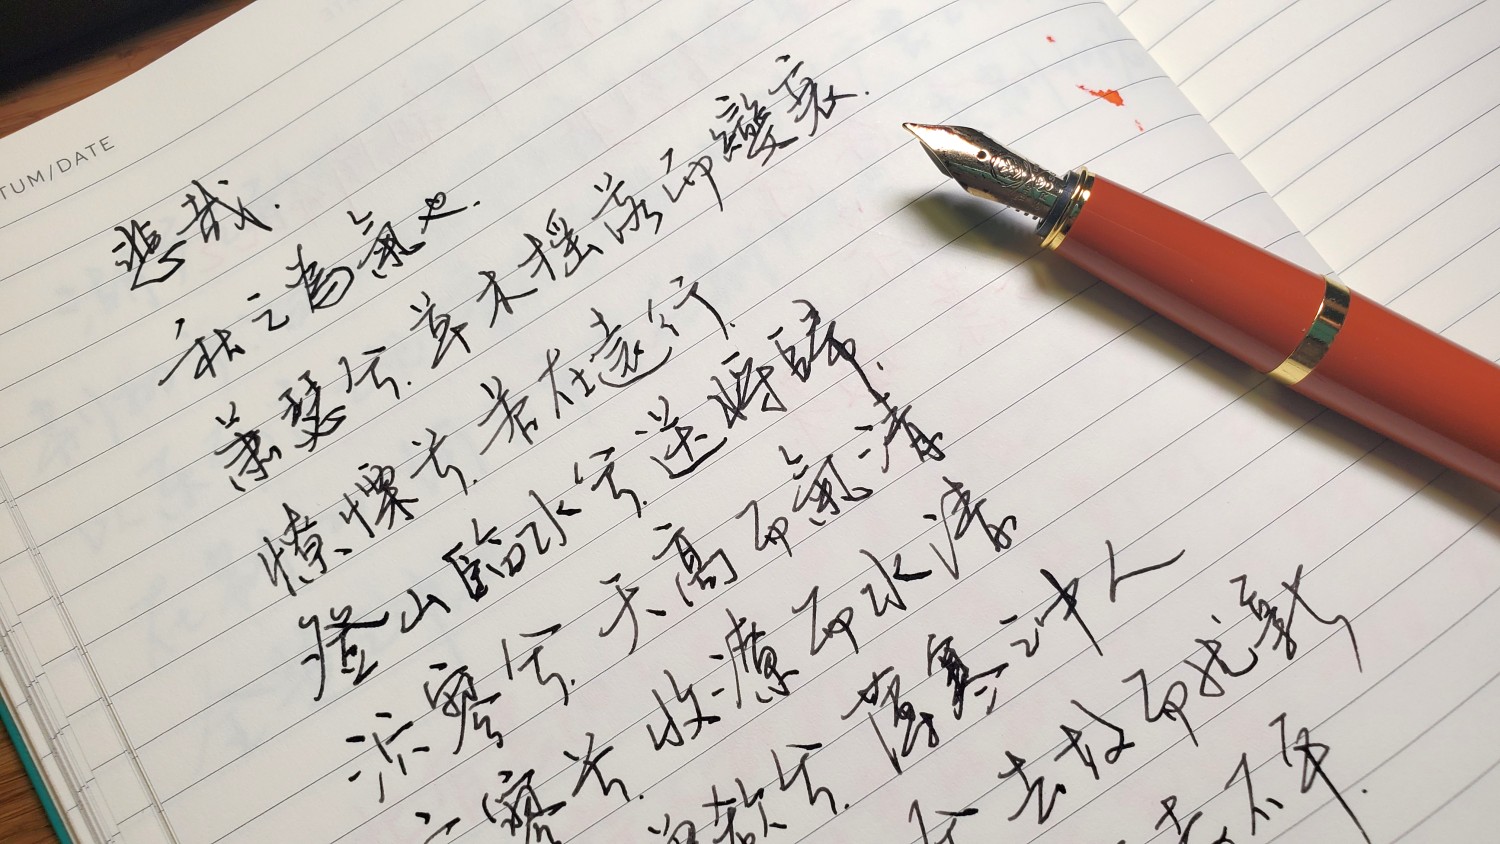 TUM/DATE
悲哉.
秋之為氣也.
蕭瑟兮.草木搖落而變衰.
憭慄兮.若在遠行.
登山臨水兮.送將歸.
泬寥兮.天高而氣清
寥兮.收潦而水清
欷兮.薄寒之中人
兮去故而就新
不平.